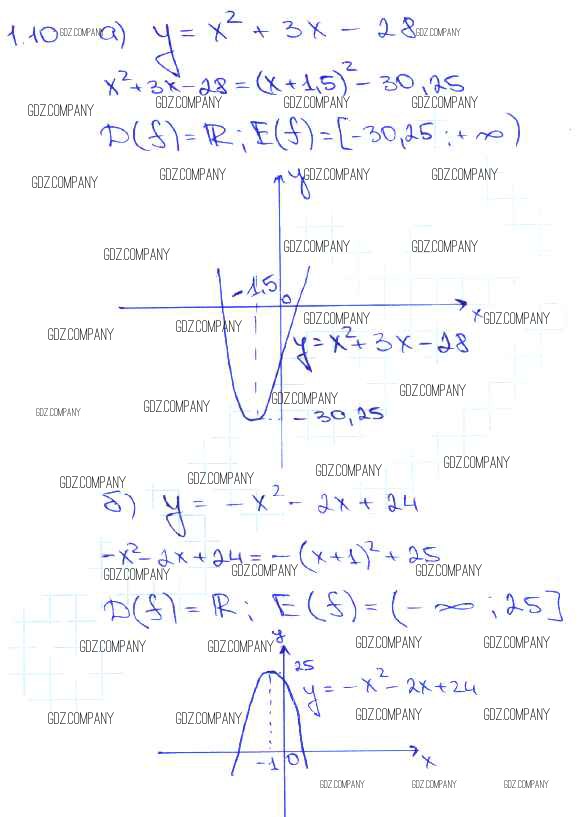 1.10 GDZ.COMPANY а) y = x² + 3x - 28 GDZ.COMPANY
x² + 3x - 28 = (x + 1,5)² - 30,25
GDZ.COMPANY GDZ.COMPANY GDZ.COMPANY GDZ.COMPANY
D(f) = ℝ; E(f) = [-30,25; +∞)
GDZ.COMPANY GDZ.COMPANY GDZ.COMPANY GDZ.COMPANY
y
GDZ.COMPANY GDZ.COMPANY GDZ.COMPANY
-1,5
0
x
GDZ.COMPANY GDZ.COMPANY GDZ.COMPANY GDZ.COMPANY
y = x² + 3x - 28
GDZ.COMPANY GDZ.COMPANY GDZ.COMPANY GDZ.COMPANY
-30,25
GDZ.COMPANY GDZ.COMPANY GDZ.COMPANY GDZ.COMPANY
б) y = -x² - 2x + 24
-x² - 2x + 24 = -(x + 1)² + 25
GDZ.COMPANY GDZ.COMPANY GDZ.COMPANY
D(f) = ℝ; E(f) = (-∞; 25]
y
GDZ.COMPANY GDZ.COMPANY GDZ.COMPANY GDZ.COMPANY
25
y = -x² - 2x + 24
GDZ.COMPANY GDZ.COMPANY GDZ.COMPANY GDZ.COMPANY
-1 0 x
GDZ.COMPANY GDZ.COMPANY GDZ.COMPANY